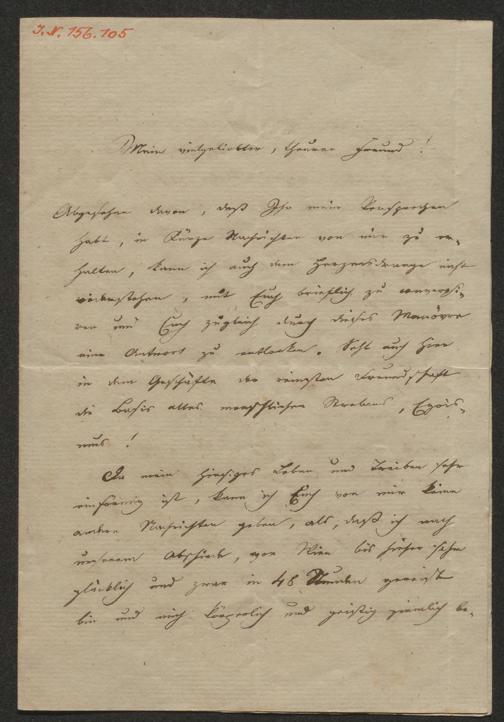 J. N. 156.105
Mein vielgeliebter, theurer Freund!
Abgesehen davon, daß Ihr mein Versprechen
habt, in Kürze Nachrichten von mir zu er-
halten, kann ich auch dem Herzensdrange nicht
widerstehen, mit Euch brieflich zu conversi-
ren und Euch zugleich durch dieses Manövre
eine Antwort zu entlocken. Seht auch hier
in dem Geschäfte der reinsten Freundschaft
die Basis alles menschlichen Strebens, Egois-
mus!
Da mein hiesiges Leben und Treiben sehr
einförmig ist, kann ich Euch von mir keine
andern Nachrichten geben, als, daß ich nach
unserem Abschiede, von Wien bis hieher sehr
glücklich und zwar in 48 Stunden gereist
bin und mich körperlich und geistig ziemlich be-